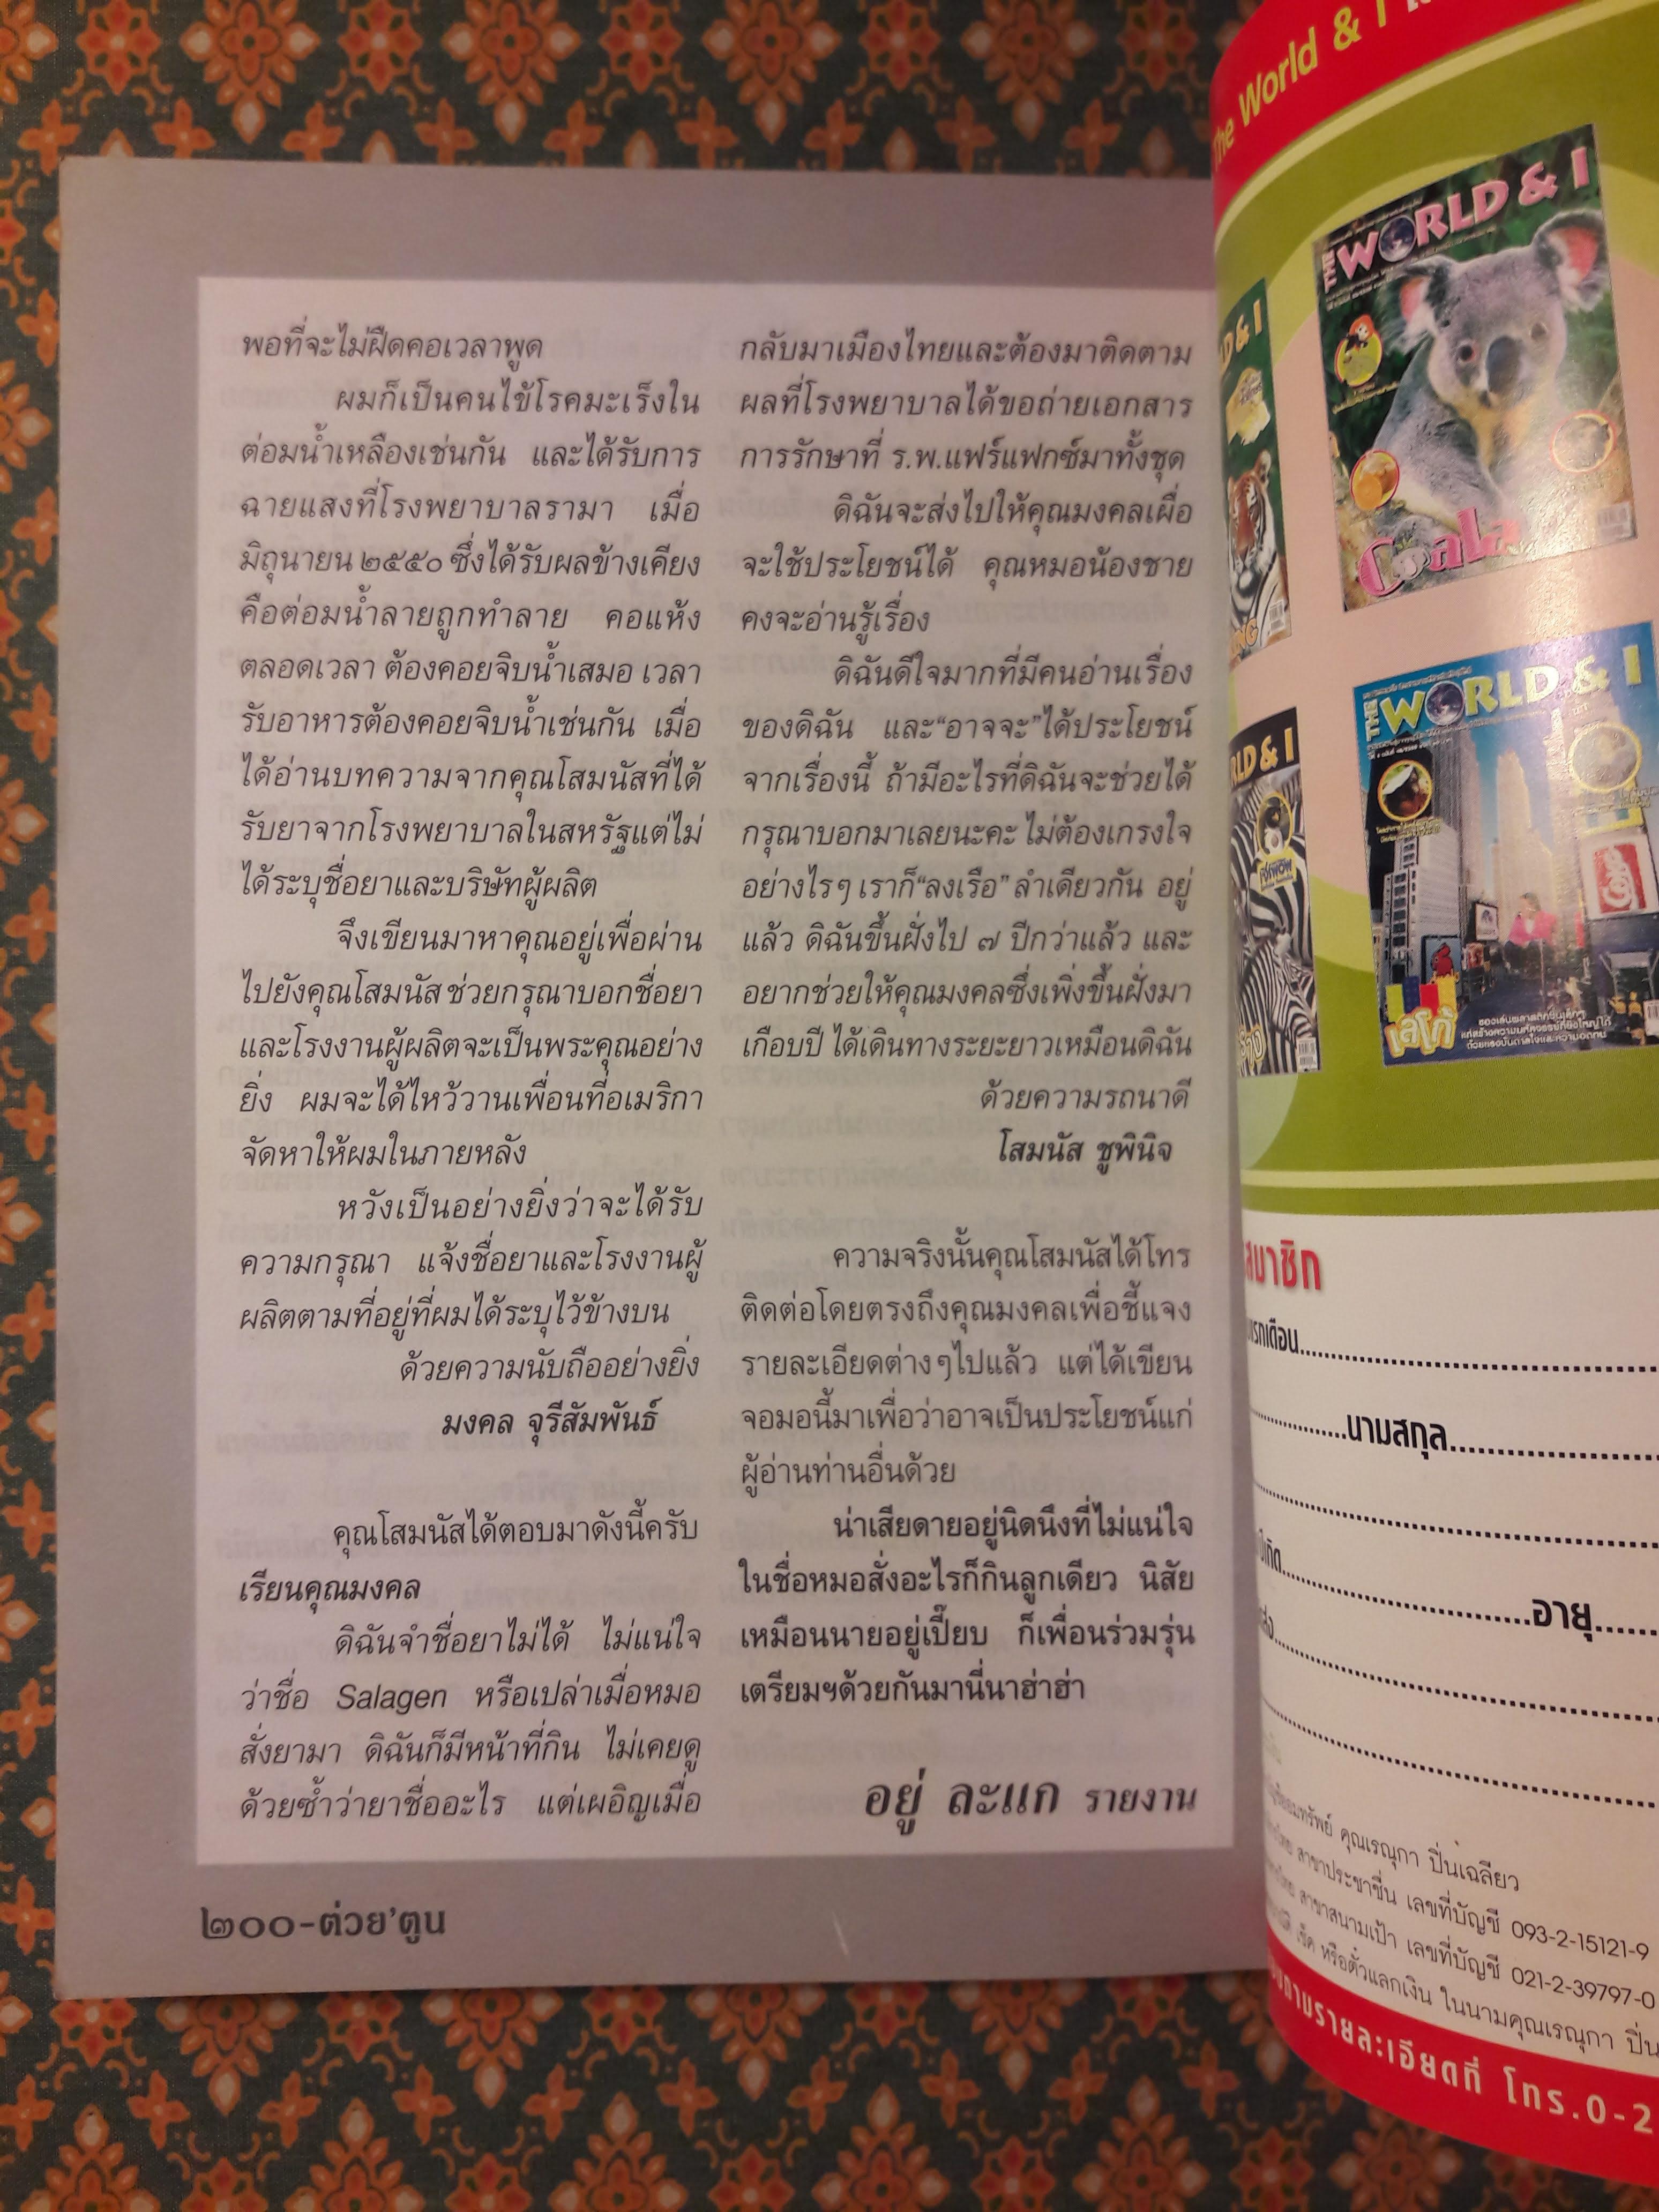 พอที่จะไม่ฝืดคอเวลาพูด
ผมก็เป็นคนไข้โรคมะเร็งใน
ต่อมน้ำเหลืองเช่นกัน และได้รับการ
ฉายแสงที่โรงพยาบาลรามา เมื่อ
มิถุนายน ๒๕๕๐ ซึ่งได้รับผลข้างเคียง
คือต่อมน้ำลายถูกทำลาย คอแห้ง
ตลอดเวลา ต้องคอยจิบน้ำเสมอ เวลา
รับอาหารต้องคอยจิบน้ำเช่นกัน เมื่อ
ได้อ่านบทความจากคุณโสมนัสที่ได้
รับยาจากโรงพยาบาลในสหรัฐแต่ไม่
ได้ระบุชื่อยาและบริษัทผู้ผลิต
จึงเขียนมาหาคุณอยู่เพื่อผ่าน
ไปยังคุณโสมนัส ช่วยกรุณาบอกชื่อยา
และโรงงานผู้ผลิตจะเป็นพระคุณอย่าง
ยิ่ง ผมจะได้ไหว้วานเพื่อนที่อเมริกา
จัดหาให้ผมในภายหลัง
หวังเป็นอย่างยิ่งว่าจะได้รับ
ความกรุณา แจ้งชื่อยาและโรงงานผู้
ผลิตตามที่อยู่ที่ผมได้ระบุไว้ข้างบน
ด้วยความนับถืออย่างยิ่ง
มงคล จุรีสัมพันธ์
คุณโสมนัสได้ตอบมาดังนี้ครับ
เรียนคุณมงคล
ดิฉันจำชื่อยาไม่ได้ ไม่แน่ใจ
ว่าชื่อ Salagen หรือเปล่าเมื่อหมอ
สั่งยามา ดิฉันก็มีหน้าที่กิน ไม่เคยดู
ด้วยซ้ำว่ายาชื่ออะไร แต่เผอิญเมื่อ
กลับมาเมืองไทยและต้องมาติดตาม
ผลที่โรงพยาบาลได้ขอถ่ายเอกสาร
การรักษาที่ ร.พ.แฟร์แฟกซ์มาทั้งชุด
ดิฉันจะส่งไปให้คุณมงคลเผื่อ
จะใช้ประโยชน์ได้ คุณหมอน้องชาย
คงจะอ่านรู้เรื่อง
ดิฉันดีใจมากที่มีคนอ่านเรื่อง
ของดิฉัน และ“อาจจะ”ได้ประโยชน์
จากเรื่องนี้ ถ้ามีอะไรที่ดิฉันจะช่วยได้
กรุณาบอกมาเลยนะคะ ไม่ต้องเกรงใจ
อย่างไรๆ เราก็“ลงเรือ” ลำเดียวกัน อยู่
แล้ว ดิฉันขึ้นฝั่งไป ๗ ปีกว่าแล้ว และ
อยากช่วยให้คุณมงคลซึ่งเพิ่งขึ้นฝั่งมา
เกือบปี ได้เดินทางระยะยาวเหมือนดิฉัน
ด้วยความรถนาดี
โสมนัส ชูพินิจ
ความจริงนั้นคุณโสมนัสได้โทร
ติดต่อโดยตรงถึงคุณมงคลเพื่อชี้แจง
รายละเอียดต่างๆไปแล้ว แต่ได้เขียน
จอมอนี้มาเพื่อว่าอาจเป็นประโยชน์แก่
ผู้อ่านท่านอื่นด้วย
น่าเสียดายอยู่นิดนึงที่ไม่แน่ใจ
ในชื่อหมอสั่งอะไรก็กินลูกเดียว นิสัย
เหมือนนายอยู่เปี๊ยบ ก็เพื่อนร่วมรุ่น
เตรียมฯด้วยกันมานี่นาฮ่าฮ่า
อยู่ ละแก รายงาน
๒๐๐-ต่วย'ตูน
The World & I
THE WORLD & I
Coala
THE WORLD & I
เลโก้
ของเล่นพลาสติกชิ้นเล็กๆ
สมาชิก
นามสกุล
อายุ
คุณเรณุกา ปิ่นเฉลียว
สาขาประชาชื่น เลขที่บัญชี 093-2-15121-9
สาขาสนามเป้า เลขที่บัญชี 021-2-39797-0
เช็ค หรือตั๋วแลกเงิน ในนามคุณเรณุกา
รายละเอียดที่ โทร.0-2